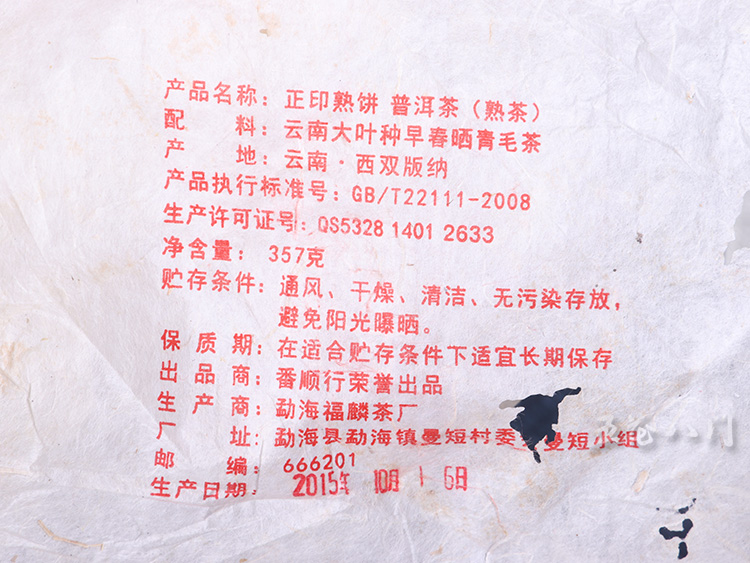 产品名称：正印熟饼 普洱茶（熟茶）
配　　料：云南大叶种早春晒青毛茶
产　　地：云南·西双版纳
产品执行标准号：GB/T22111-2008
生产许可证号：QS5328 1401 2633
净含量：357克
贮存条件：通风、干燥、清洁、无污染存放，
避免阳光曝晒。
保 质 期：在适合贮存条件下适宜长期保存
出 品 商：番顺行荣誉出品
生 产 商：勐海福麟茶厂
厂　　址：勐海县勐海镇曼短村委 曼短小组
邮　　编：666201
生产日期：2015年 10月 16日
八门